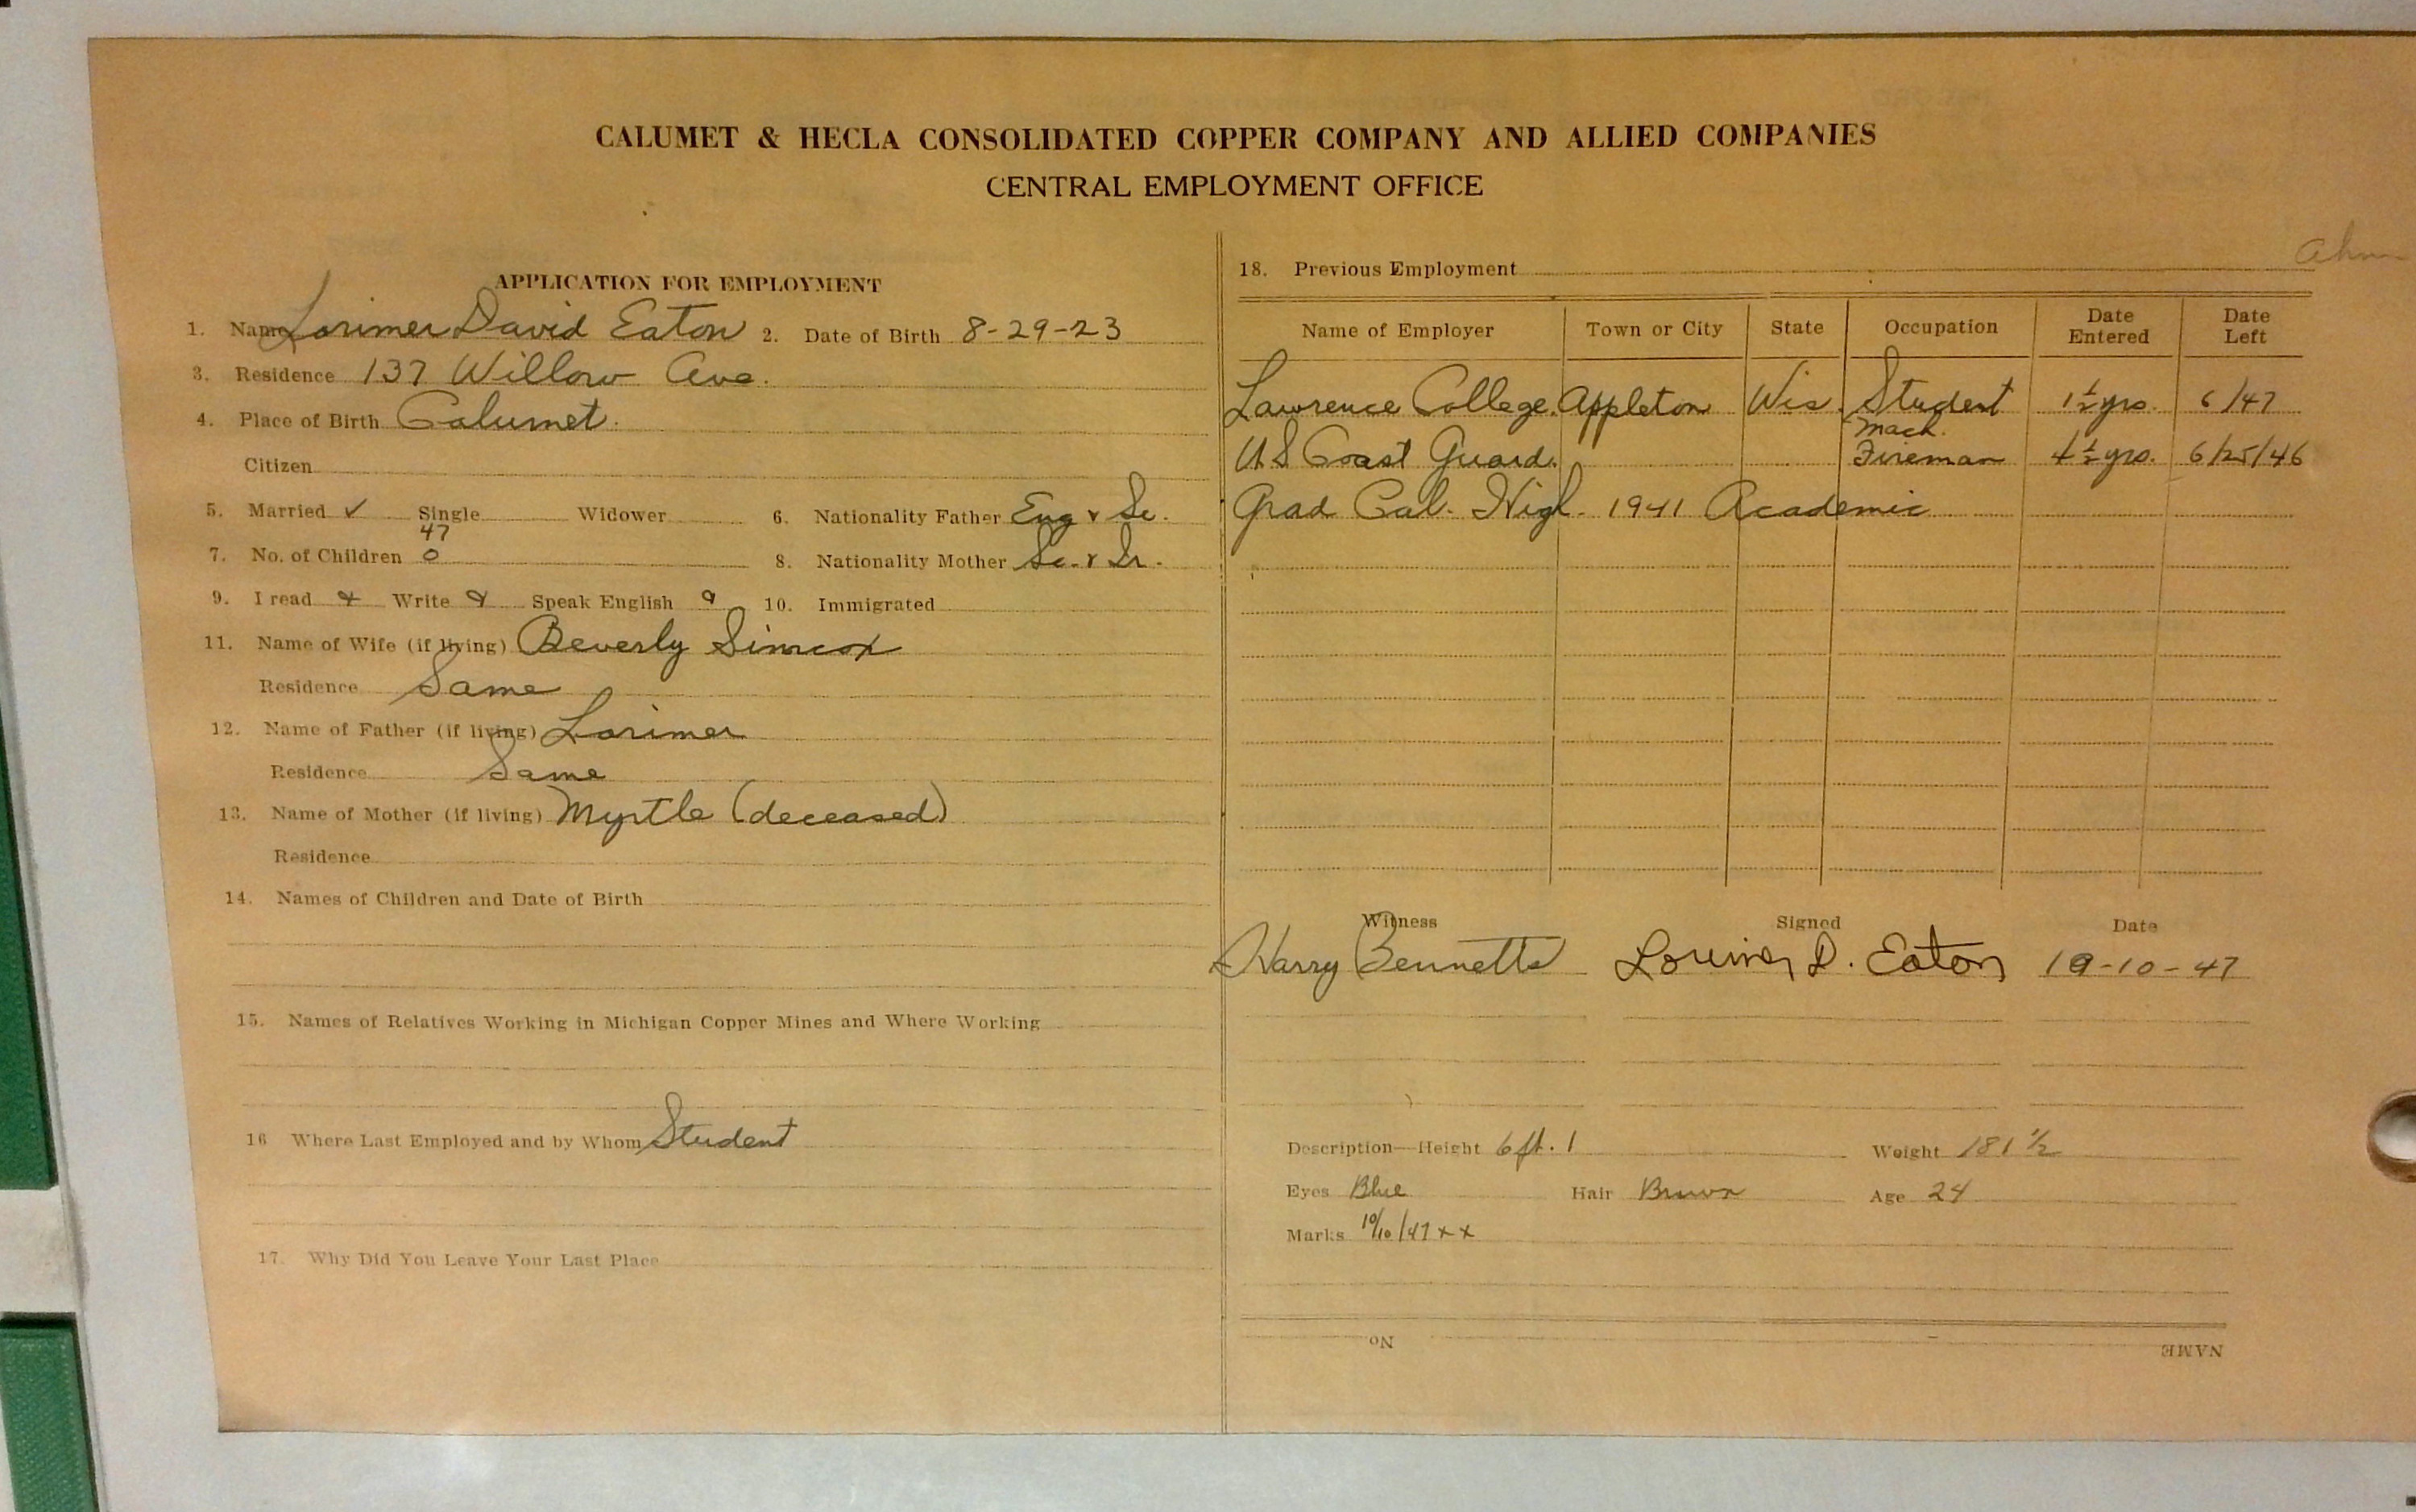 CALUMET & HECLA CONSOLIDATED COPPER COMPANY AND ALLIED COMPANIES
CENTRAL EMPLOYMENT OFFICE
APPLICATION FOR EMPLOYMENT
1. Name Lorimer David Eaton 2. Date of Birth 8-29-23
3. Residence 137 Willow Ave.
4. Place of Birth Calumet.
Citizen
5. Married ✓ Single Widower 6. Nationality Father Eng & Sc.
47
7. No. of Children 0 8. Nationality Mother Sc. & Ir.
9. I read Write Speak English 10. Immigrated
11. Name of Wife (if living) Beverly Simcox
Residence Same
12. Name of Father (if living) Lorimer
Residence Same
13. Name of Mother (if living) Myrtle (deceased)
Residence
14. Names of Children and Date of Birth
15. Names of Relatives Working in Michigan Copper Mines and Where Working
16 Where Last Employed and by Whom Student
17. Why Did You Leave Your Last Place
18. Previous Employment
Name of Employer Town or City State Occupation Date Entered Date Left
Lawrence College. Appleton Wis. Student 1 1/2 yrs. 6/47
Mach.
U S Coast Guard. Fireman 4 1/2 yrs. 6/25/46
Grad Cal. High. 1941 Academic
Witness Signed Date
Harry Bennetts Lorimer D. Eaton 10-10-47
Description—Height 6 ft. 1 Weight 181 1/2
Eyes Blue Hair Brown Age 24
Marks 10/10/47 x x
No
NAME